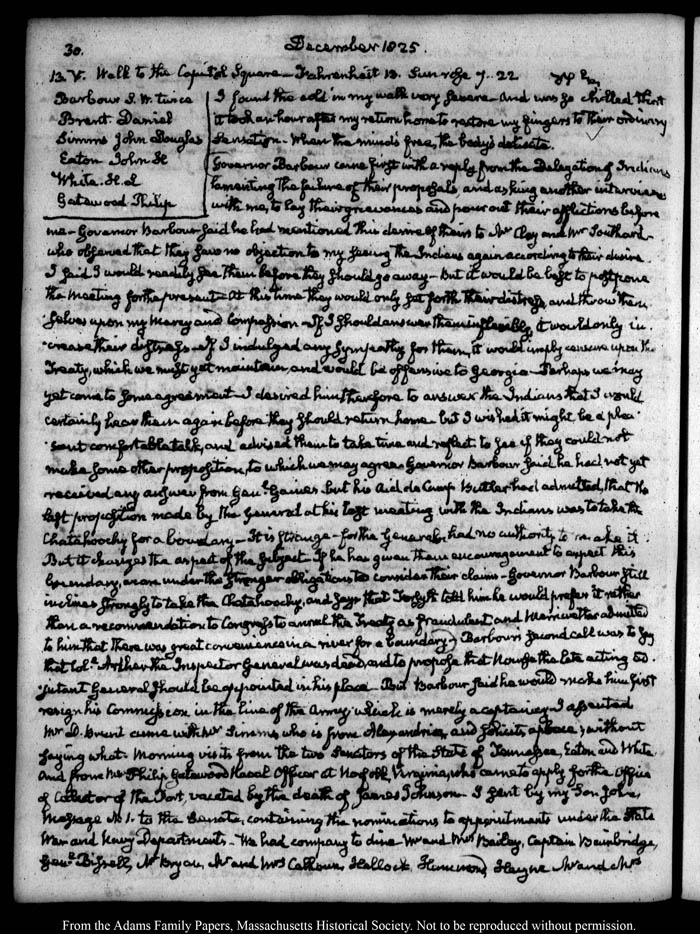 30.
December 1825.
13. V. Walk to the Capitol Square — Fahrenheit 13. Sun rose 7..22
Barbour J. W. twice
Brent Daniel
Simms John Douglas
Eaton John H
White. H. L
Gatewood Philip
I found the cold in my walk very severe — And was so chilled that
it took an hour after my return home to restore my fingers to their ordinary
sensation — When the mind's free, the body's delicate.
Governor Barbour came first with a reply from the Delegation of Indians
lamenting the failure of their proposals, and asking another interview
with me, to lay their grievances and pour out their afflictions before
me — Governor Barbour said he had mentioned this desire of theirs to Mr Clay and Mr Southard
who observed that they saw no objection to my seeing the Indians again according to their desire.
I said I would readily see them before they should go away — But it would be best to postpone
the meeting for the present — At this time they would only set forth their distress, and throw them
selves upon my mercy and compassion — If I should answer them inflexibly, it would only in-
crease their distress — If I indulged any sympathy for them, it would imply censure upon the
Treaty, which we must yet maintain, and would be offensive to Georgia — Perhaps we may
yet come to some agreement — I desired him therefore to answer the Indians that I would
certainly hear them again before they should return home — but I wished it might be a plea-
sant comfortable talk, and advised them to take time and reflect to see if they could not
make some other proposition, to which we may agree. Governor Barbour said he had not yet
received any answer from Genl. Gaines — but his Aid de Camp Butler had admitted, that the
last proposition made by the General at his last meeting with the Indians was to take the
Chatahoochy for a boundary — It is strange — for the General had no authority to make it.
But it changes the aspect of the subject — If he has given them encouragement to expect this
boundary, we are under the stronger obligations to consider their claim — Governor Barbour still
inclines strongly to take the Chatahoochy, and says that Forsyth told him he would prefer it rather
than a recommendation to Congress to annul the Treaty as fraudulent and Merriwether admitted
to him that there was great convenience in a river for a boundary) Barbour's second call was to say
that Coll. Archer the Inspector General was dead, and to propose that Nourse the late acting Ad-
jutant General should be appointed in his place — But Barbour said he would make him first
resign his Commission in the line of the Army which is merely a captaincy — I assented
Mr D. Brent came with Mr Simms who is from Alexandria, and solicits a place, without
saying what. Morning visits from the two Senators of the State of Tennessee, Eaton and White
and from Mr Philip Gatewood Naval Officer at Norfolk, Virginia, who came to apply for the Office
of Collector of the Port, vacated by the death of James Johnson — I sent by my Son John,
Message N. 1. to the Senate, containing the nominations to appointments under the State
War and Navy Departments — We had company to dine — Mr and Mrs Bailey, Captain Bainbridge,
Genl. Bissell, Mr Bryan, Mr and Mrs Calhoun, Hallock, Hemmond, Hayne Mr and Mrs
From the Adams Family Papers, Massachusetts Historical Society. Not to be reproduced without permission.